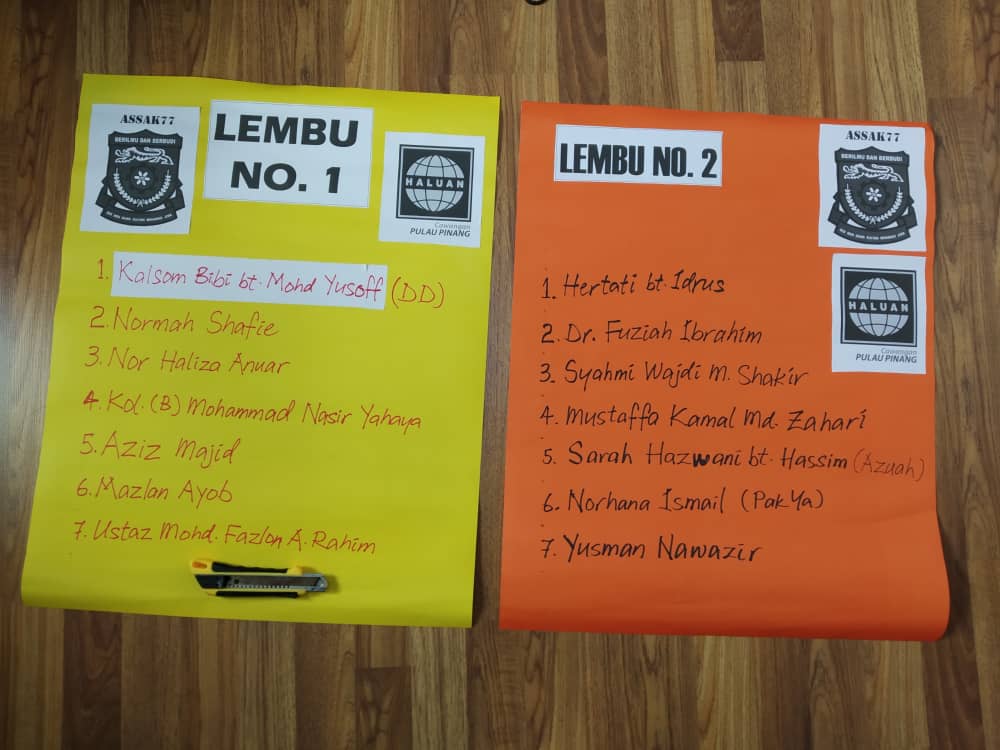 ASSAK77
BERILMU DAN BERBUDI
LEMBU
NO. 1
HALUAN
Cawangan
PULAU PINANG
1. Kalsom Bibi bt. Mohd Yusoff (DD)
2. Normah Shafie
3. Nor Haliza Anuar
4. Kol. (B) Mohammad Nasir Yahaya
5. Aziz Majid
6. Mazlan Ayob
7. Ustaz Mohd. Fazlon A. Rahim
LEMBU NO. 2
ASSAK77
BERILMU DAN BERBUDI
HALUAN
Cawangan
PULAU PINANG
1. Hertati bt. Idrus
2. Dr. Fuziah Ibrahim
3. Syahmi Wajdi M. Shakir
4. Mustaffa Kamal Md. Zahari
5. Sarah Hazwani bt. Hassim (Azuah)
6. Norhana Ismail (Pak Ya)
7. Yusman Nawazir